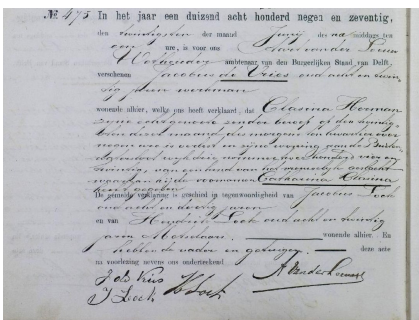 № 475 In het jaar een duizend acht honderd negen en zeventig,
den twintigsten der maand Junij des na middags ten
een ure, is voor ons
Wethouder ambtenaar van den Burgerlijken Stand van Delft,
verschenen Jacobus de Vries oud acht en twin-
tig jaren werkman
wonende alhier, welke ons heeft verklaard, dat Clasina Herman
zijne echtgenoote zonder beroep op den
van deze maand, des morgens ten kwartier voor
negen ure is bevallen in zijne woning aan de
wijk drie nommer honderd vier en
twintig, van een kind van het geslacht
waaraan zijn voornamen Catharina Clasina
heeft gegeven
De gemelde verklaring is geschied in tegenwoordigheid van Jacobus Loek
oud acht en dertig jaren
en van Hendrik Loek oud acht en twintig
jaren Metselaars, wonende alhier. En
hebben de vader en getuigen deze acte
na voorlezing nevens ons onderteekend
J de Vries
J Loek H Loek